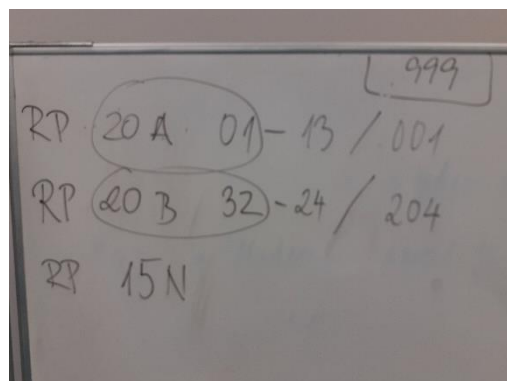 999
RP 20A 01-13/001
RP 20B 32-24/204
RP 15N